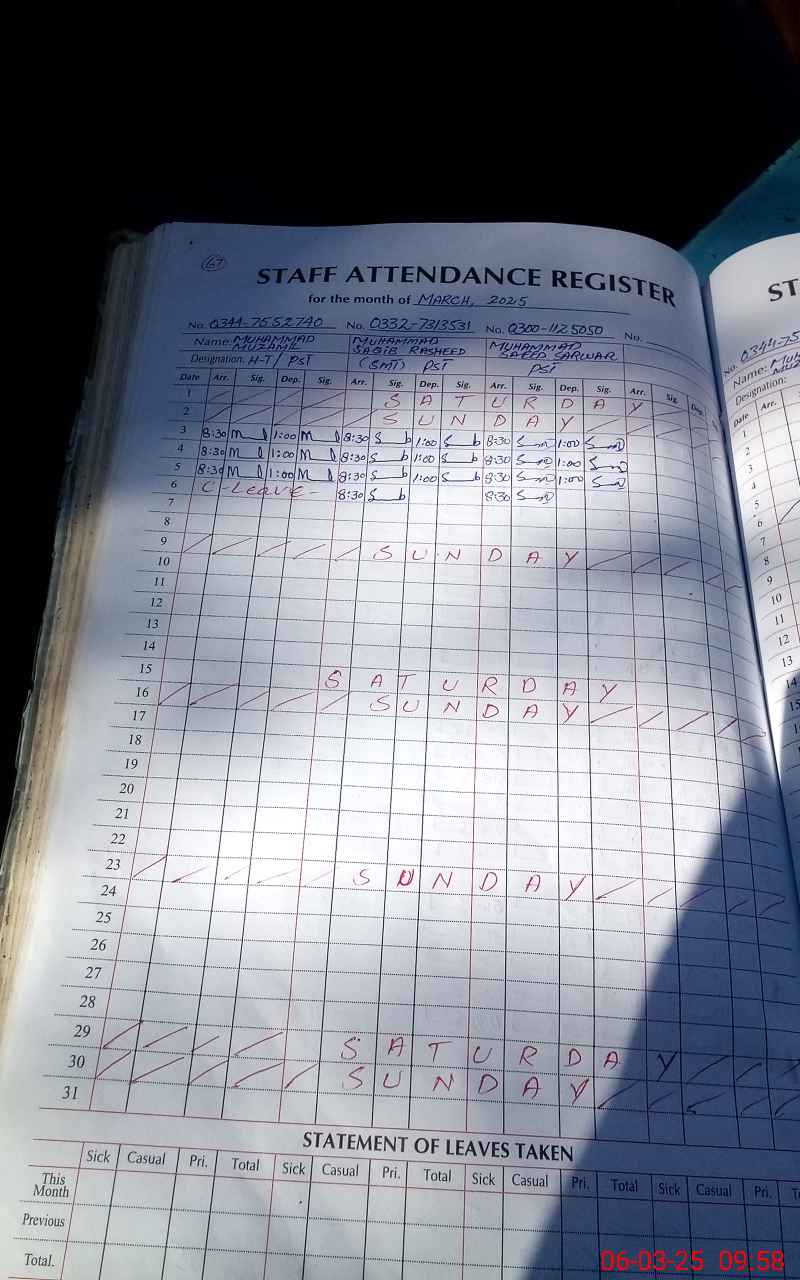 67
STAFF ATTENDANCE REGISTER
for the month of MARCH, 2025
No. 0344-7552740 No. 0332-7313531 No. 0300-1125050 No.
Name: MUHAMMAD MUZAMIL MUHAMMAD SAQIB RASHEED MUHAMMAD SAEED SARWAR
Designation: H-T/PST (SMT) PST PST
Date Arr. Sig. Dep. Sig. Arr. Sig. Dep. Sig. Arr. Sig. Dep. Sig. Arr. Sig. Dep.
1 SATURDAY
2 SUNDAY
3 8:30 1:00 8:30 1:00 8:30 1:00
4 8:30 1:00 8:30 1:00 8:30 1:00
5 8:30 1:00 8:30 1:00 8:30 1:00
6 C-Leave- 8:30 8:30
7
8
9 SUNDAY
10
11
12
13
14
15 SATURDAY
16 SUNDAY
17
18
19
20
21
22
23 SUNDAY
24
25
26
27
28
29 SATURDAY
30 SUNDAY
31
STATEMENT OF LEAVES TAKEN
Sick Casual Pri. Total Sick Casual Pri. Total Sick Casual Pri. Total Sick Casual Pri.
This Month
Previous
Total.
ST
No. 0344-75
Name: MUH
Designation:
Date Arr.
1
2
3
4
5
6
7
8
9
10
11
12
13
14
15
06-03-25 09:58